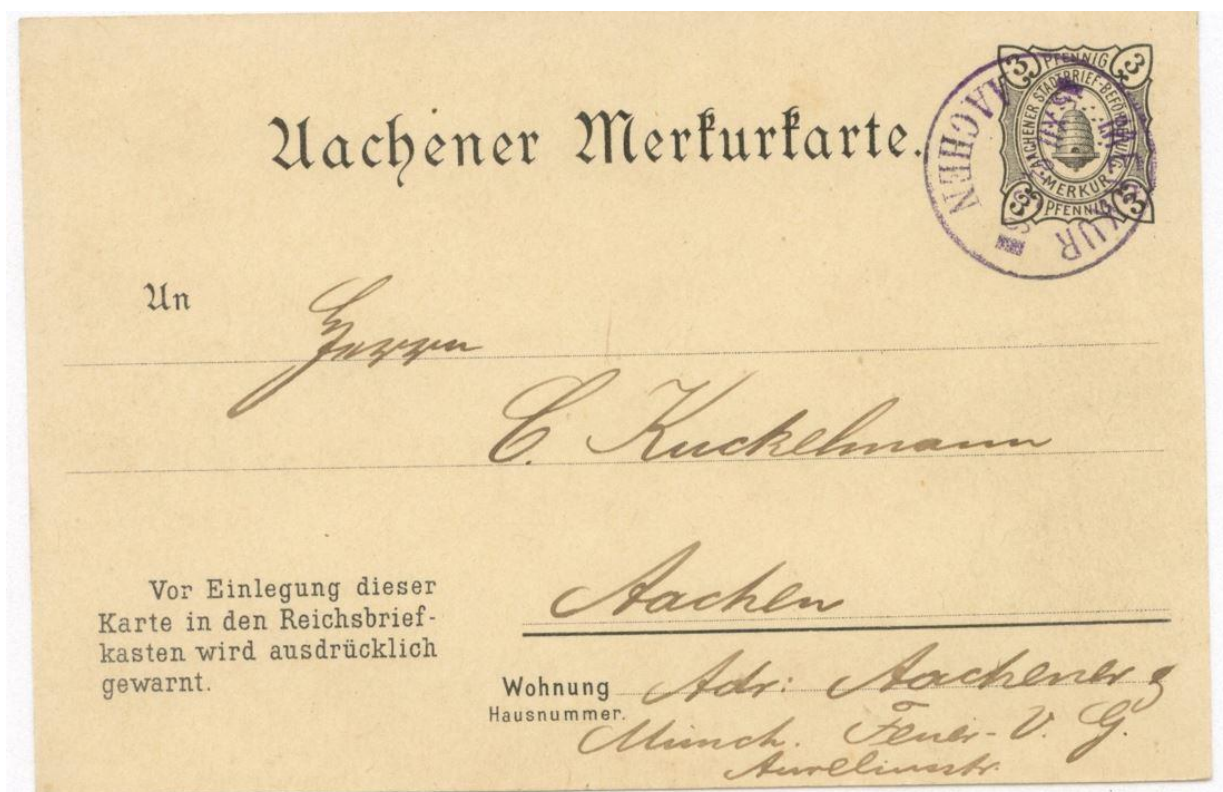 Aachener Merkurkarte.
3 PFENNIG 3
AACHENER STADTBRIEF-BEFÖRDERUNG
MERKUR
3 PFENNIG 3
AACHEN
MERKUR
An
Herrn
C. Kuckelmann
Aachen
Vor Einlegung dieser
Karte in den Reichsbrief-
kasten wird ausdrücklich
gewarnt.
Wohnung Adr: Aachener &
Hausnummer. Münch. Feuer-V. G.
Aureliusstr.